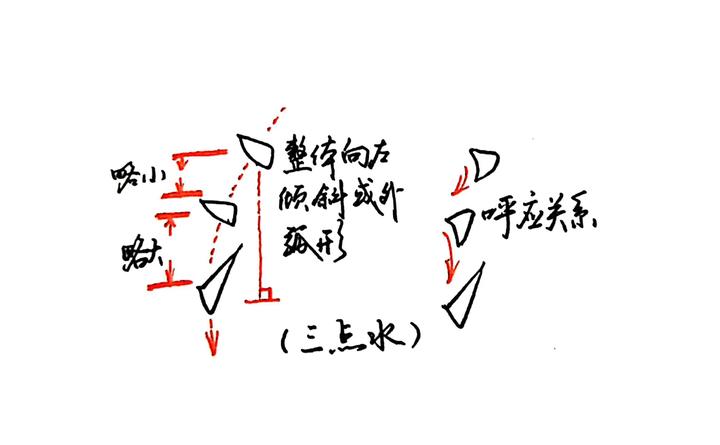 略小
略大
整体向左
倾斜或外
弧形
呼应关系
(三点水)